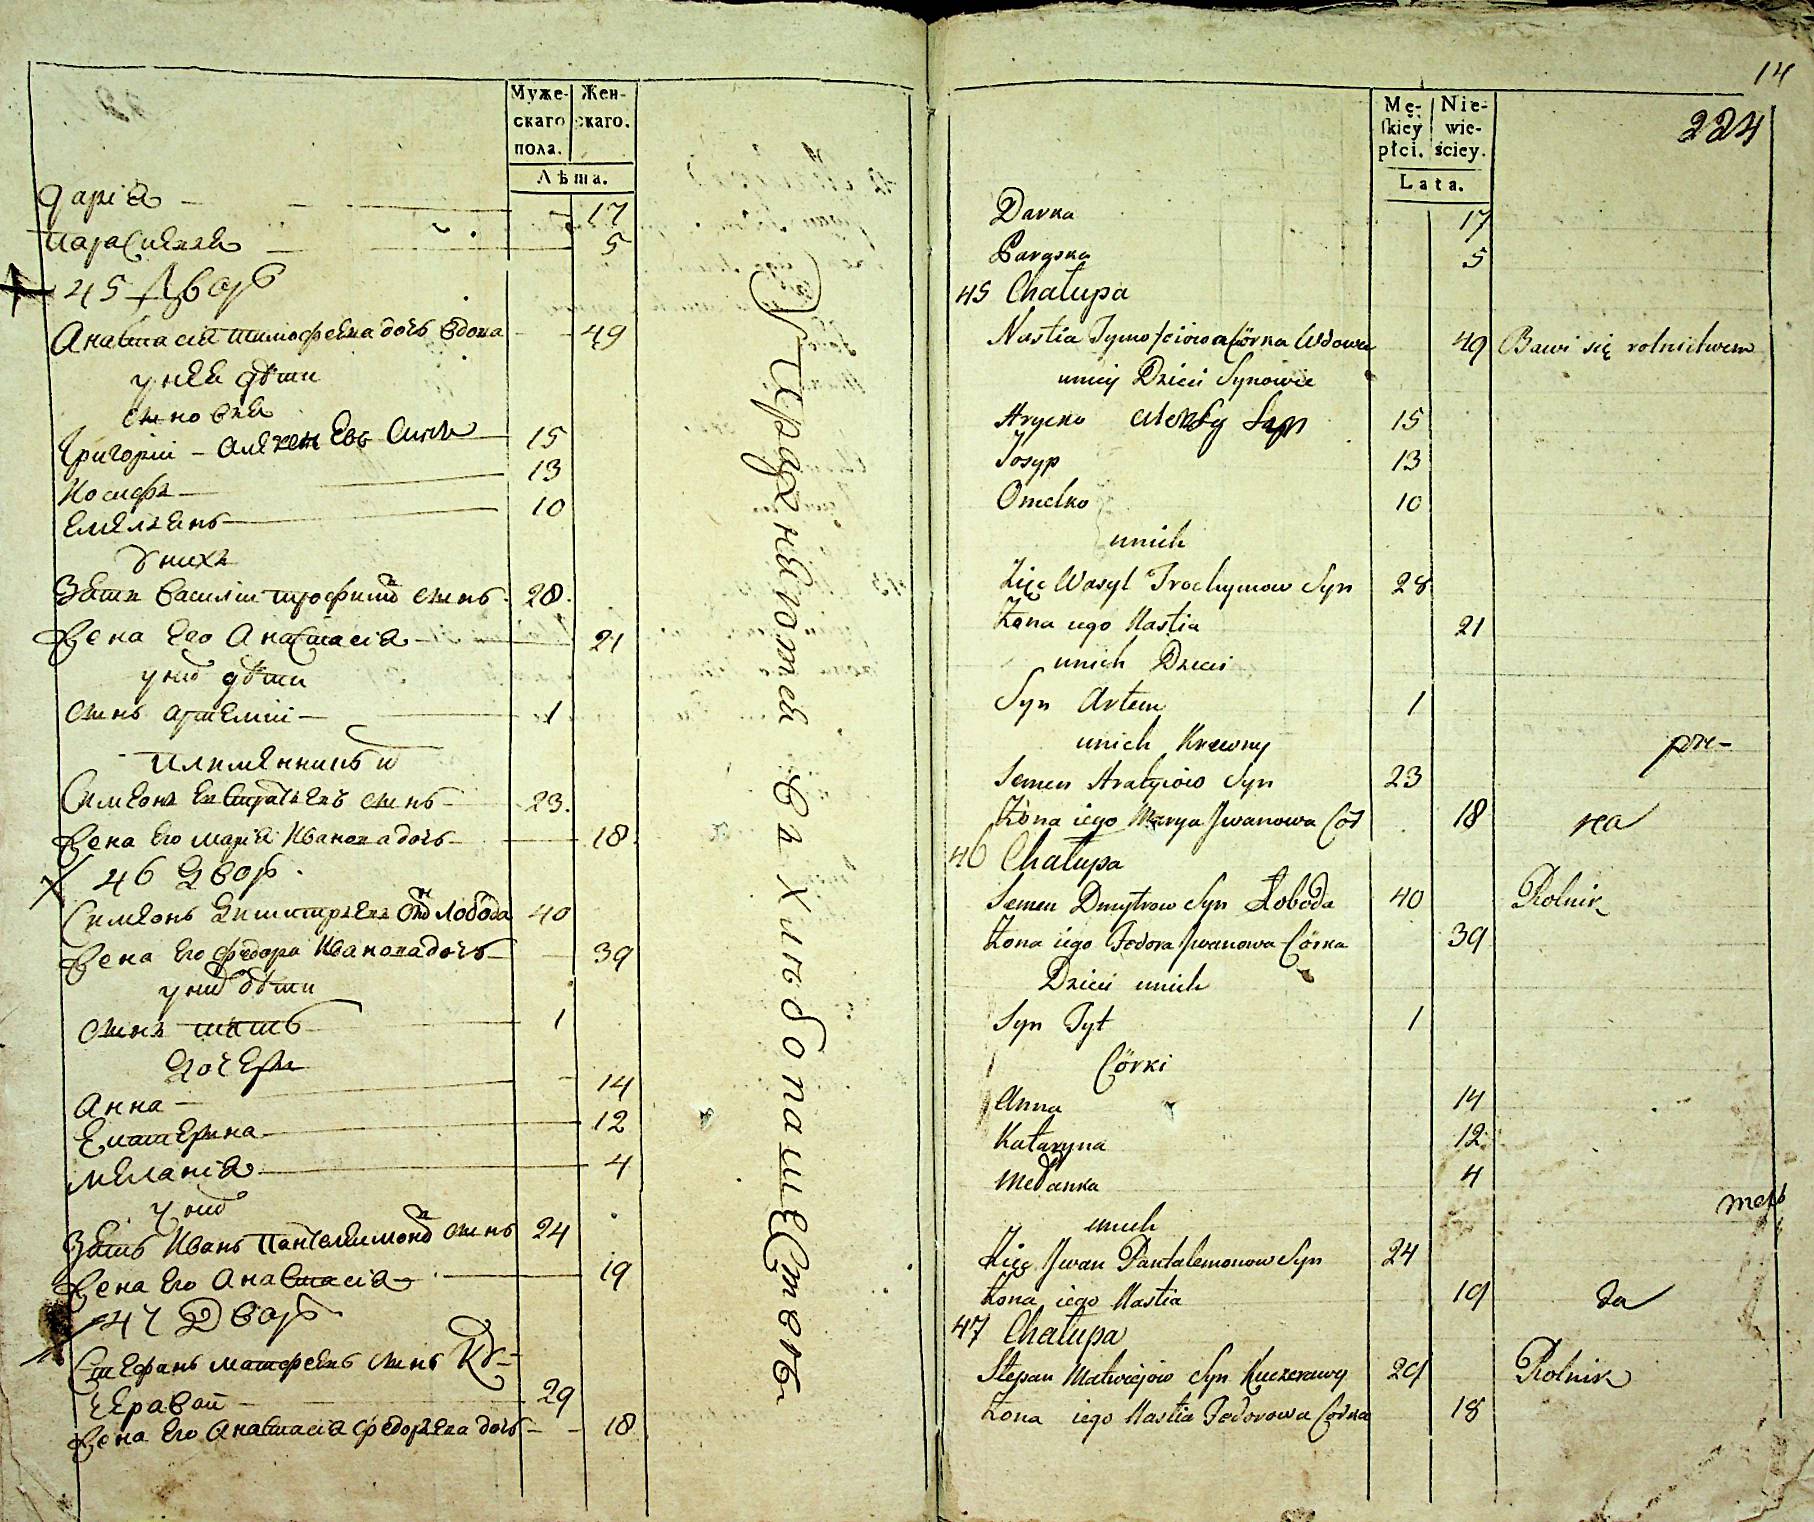 Муже- Жен-
скаго скаго.
пола.
Лѣта.
Дарія 17
Параскевія 5
45 Дворъ
Анастасія тимофеева дочь вдова 49
у нея дѣти
сыновя
Григорій - Алексеевъ Сынъ 15
Иосифъ 13
Емелянъ 10
У нихъ
Зять василій трофимов сынъ 28.
Жена Его Анастасія 21
у них дѣти
сынъ артемій 1
племянникъ их
Симеонъ сынъ 23.
Жена Его марія Иванова дочь 18
46 Дворъ
Симеонъ Димитріевъ Сын Лобода 40
Жена Его федора Иванова дочь 39
у них дѣти
сынъ титъ 1
Дочери
Анна 14
Екатерина 12
Меланія 4
у них
Зять Иванъ Пантелимонов сынъ 24
Жена Его Анастасія 19
47 Дворъ
Стефанъ матфеевъ сынъ Ку-
черавой 29
Жена Его Анастасія федорова дочь 18
Упражняются въ хлѣбопашествѣ
14
224
Mę- Nie-
skiéy wie-
płci. ściey.
Lata.
Darka 17
Paraska 5
45 Chałupa
Nastia Tymofiiowa Córka Wdowa 49 Bawi się rolnictwem
u niey Dzieci Synowie
Hrycko Syn 15
Josyp 13
Omelko 10
u nich
Zięć Wasyl Trochymow Syn 28
Żona iego Nastia 21
u nich Dzieci
Syn Artem 1
u nich Krewny
Semen Syn 23
Żona iego Marya Jwanowa Cór 18
46 Chałupa
Semen Dmytrow Syn Łoboda 40 Rolnik
Żona iego Fedora Jwanowa Córka 39
Dzieci u nich
Syn Tyt 1
Córki
Anna 14
Kataryna 12
Mełanka 4
u nich
Zięć Jwan Pantalemonow Syn 24
Żona iego Nastia 19
47 Chałupa
Stepan Matwiejow Syn Kuczerawy 29 Rolnik
Żona iego Nastia Fedorowa Córka 18